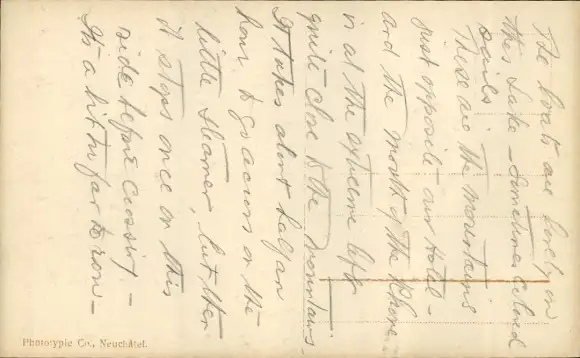 The boats are lovely on
this Lake – Sometimes colored
Sails
These are the Mountains
just opposite our Hotel –
and the Mouth of the Rhone
is at the extreme left
quite close to the Mountains.
It takes about half an
hour to go across on the
little steamer, but then
it stops once on this
side before crossing –
Its a bit too far to row –
Phototypie Co., Neuchâtel.